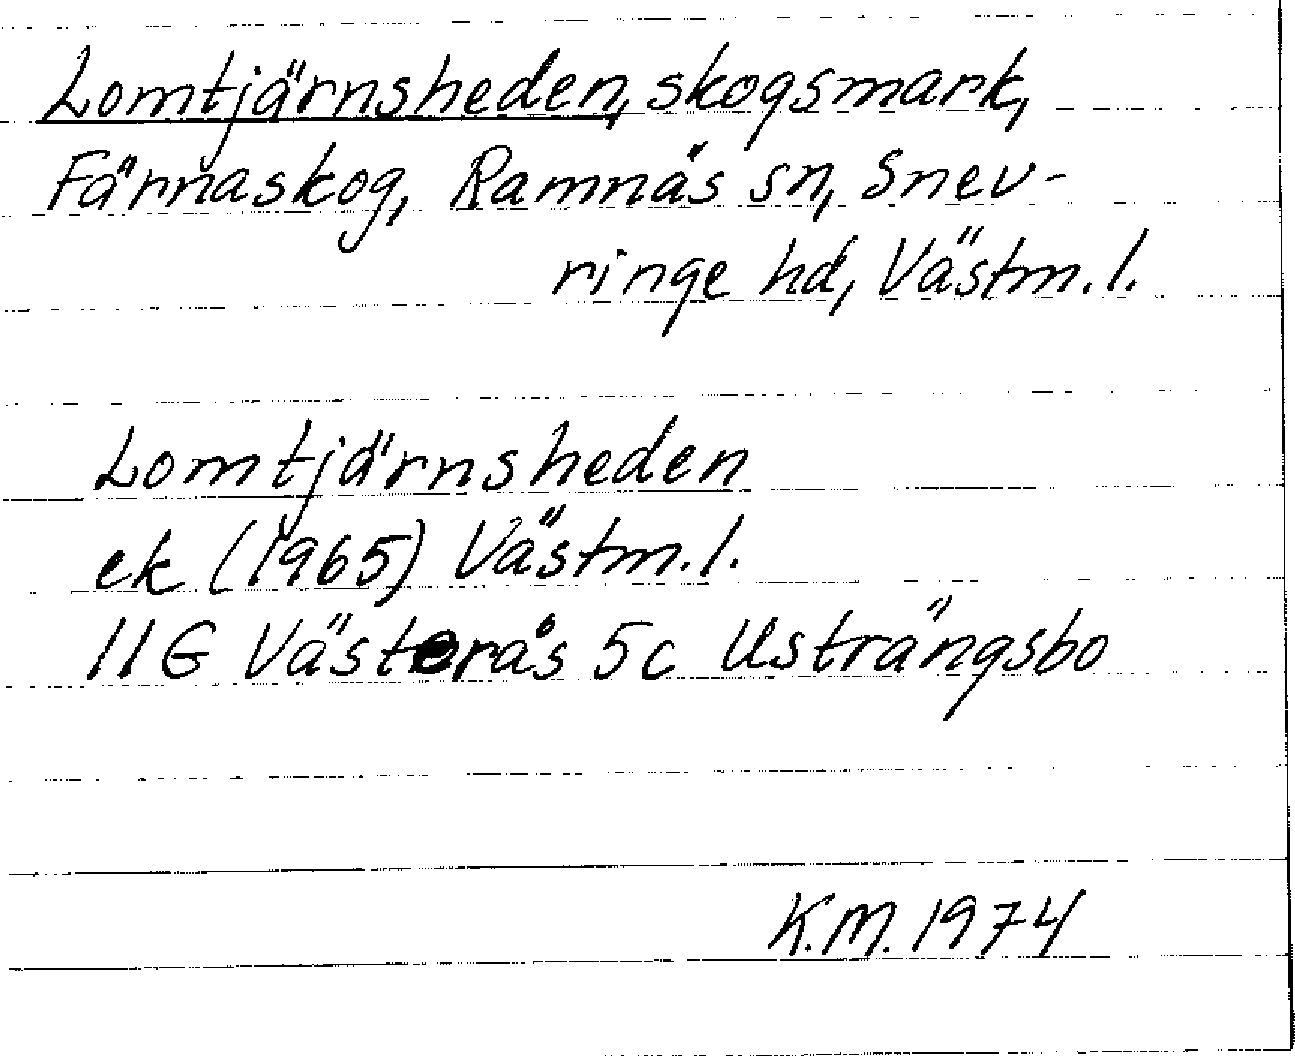 Lomtjärnsheden, skogsmark,
Färnaskog, Ramnäs sn, Snev-
ringe hd, Västm.l.
Lomtjärnsheden
ek (1965) Västm.l.
11G Västerås 5c Usträngsbo
K.M. 1974